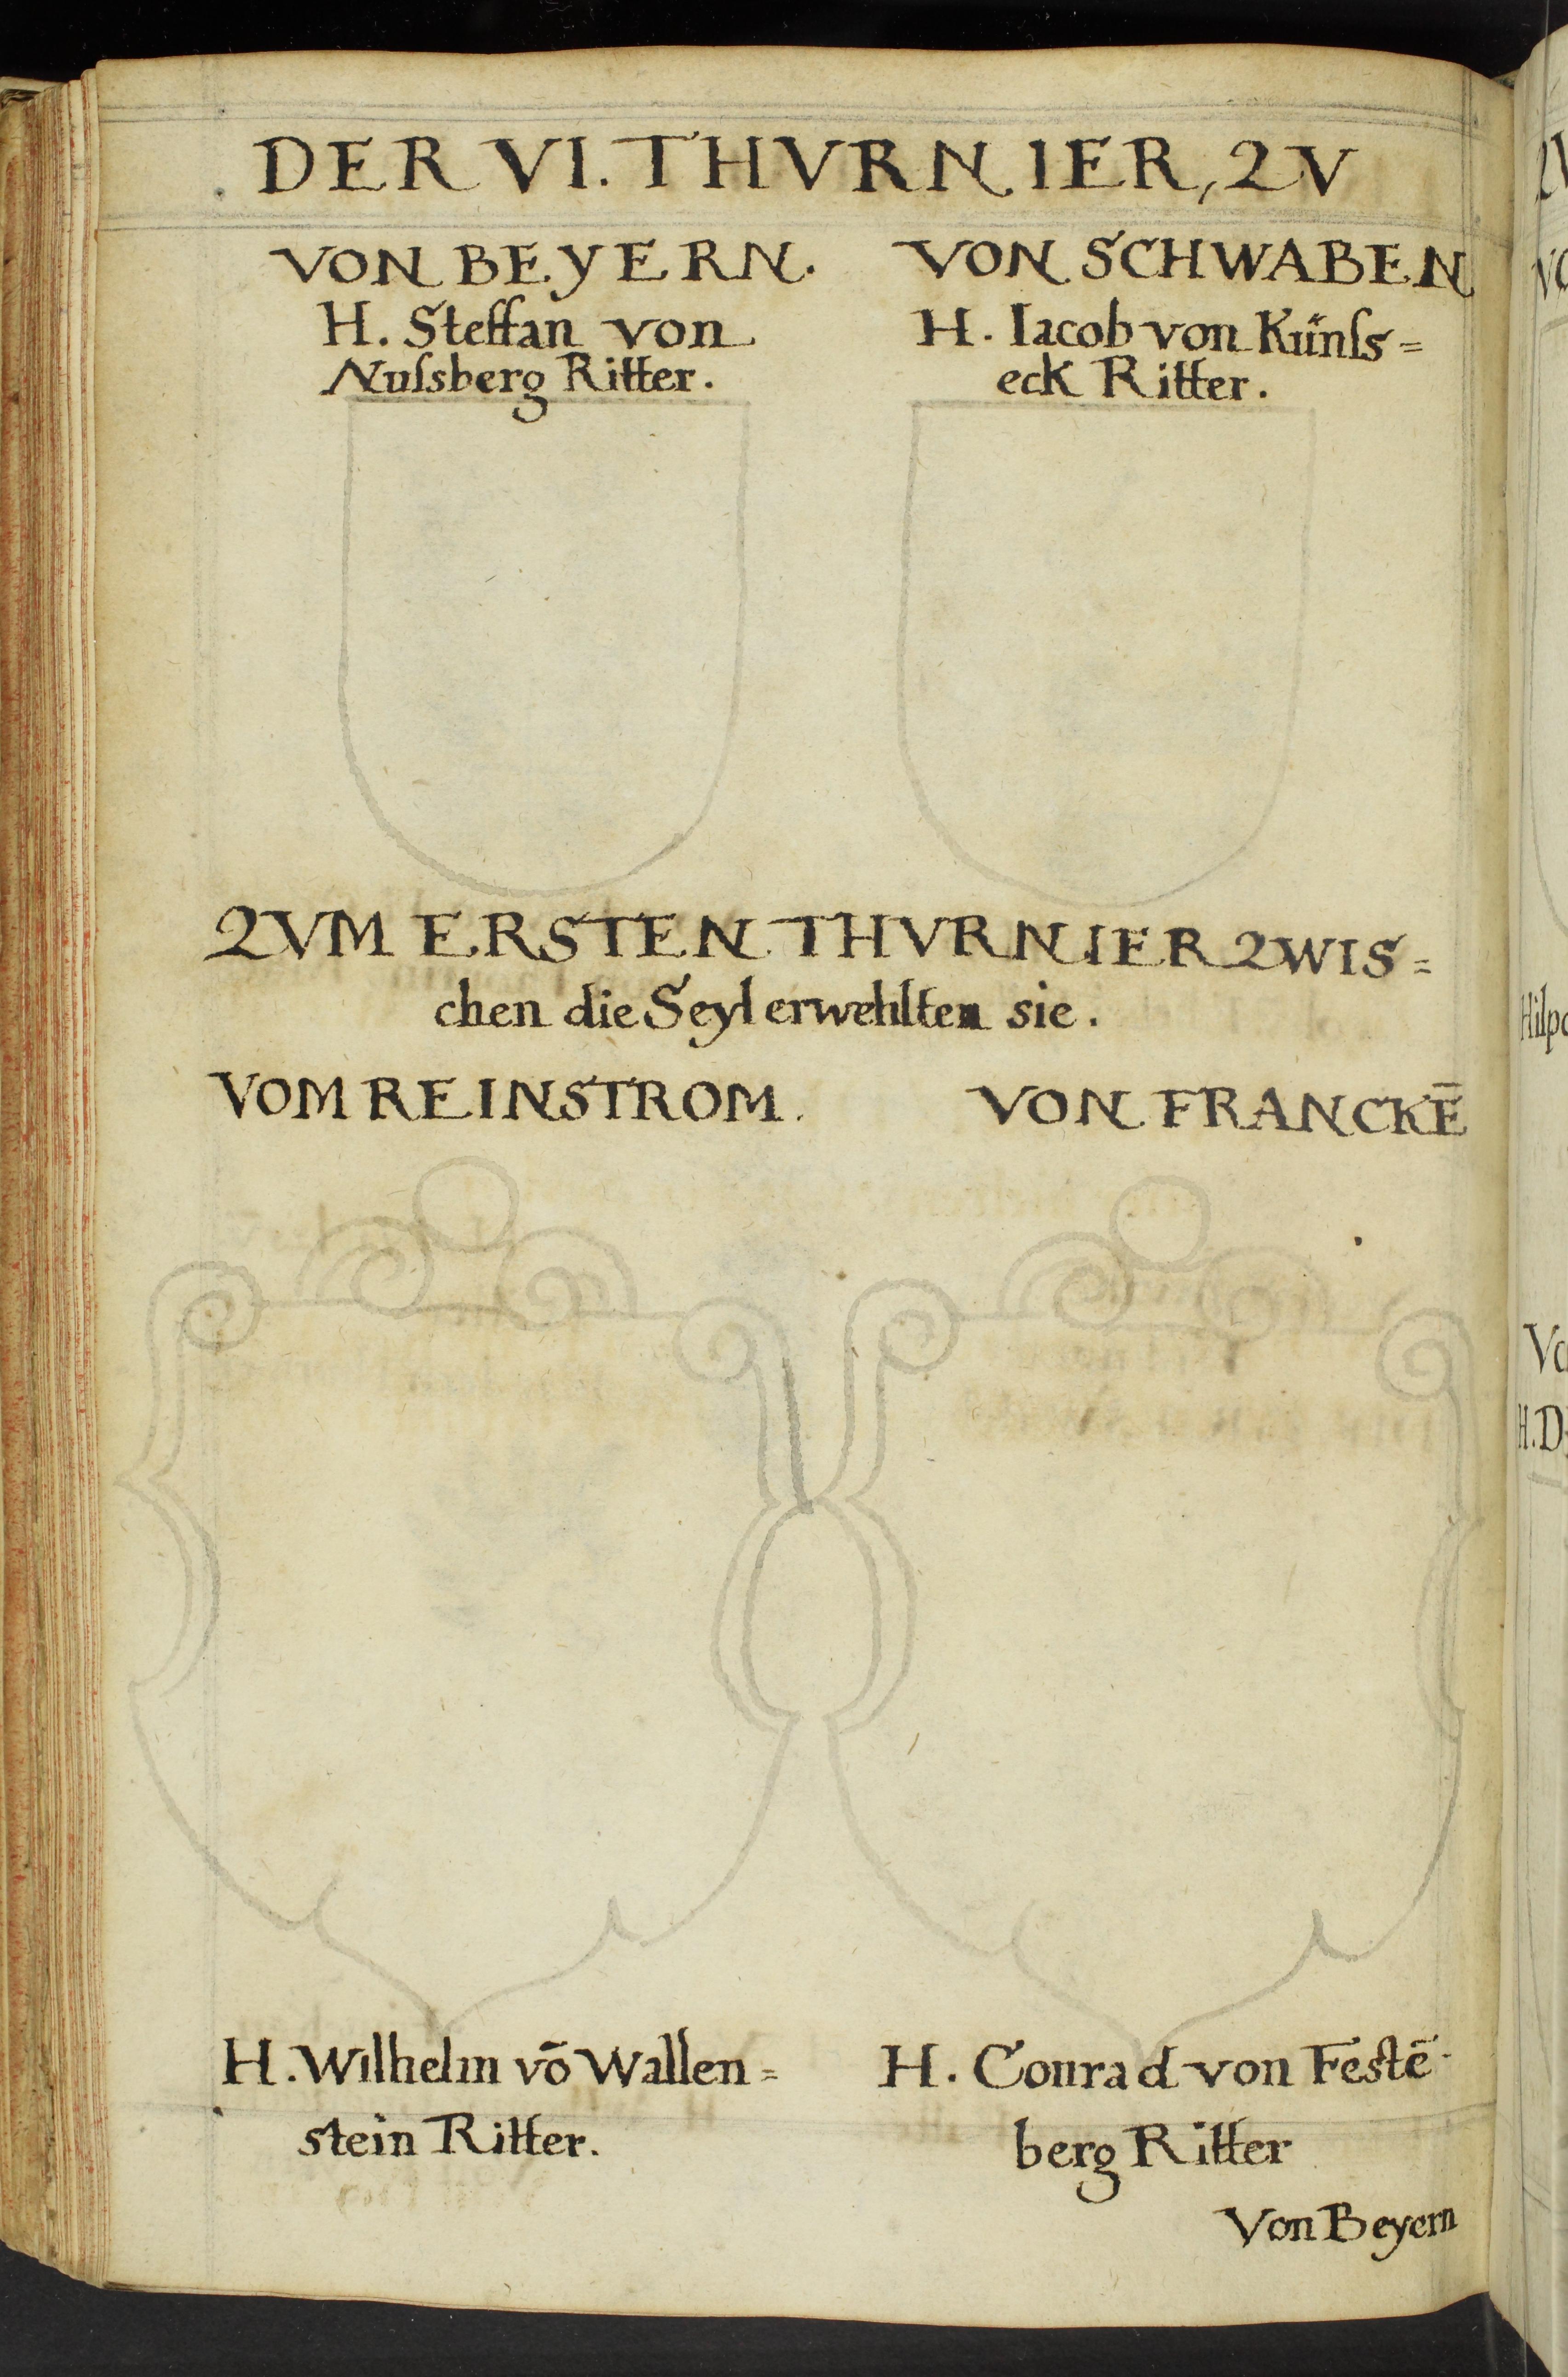 DER VI. THVRNIER, ZV
VON BEYERN.
H. Steffan von
Nuſsberg Ritter.
VON SCHWABEN
H. Iacob von Künſs=
eck Ritter.
ZVM ERSTEN THVRNIER ZWIS=
chen die Seyl erwehlten sie.
VOM REINSTROM.
VON FRANCKĒ
H. Wilhelm vō Wallen=
stein Ritter.
H. Conrad von Festē
berg Ritter
Von Beyern